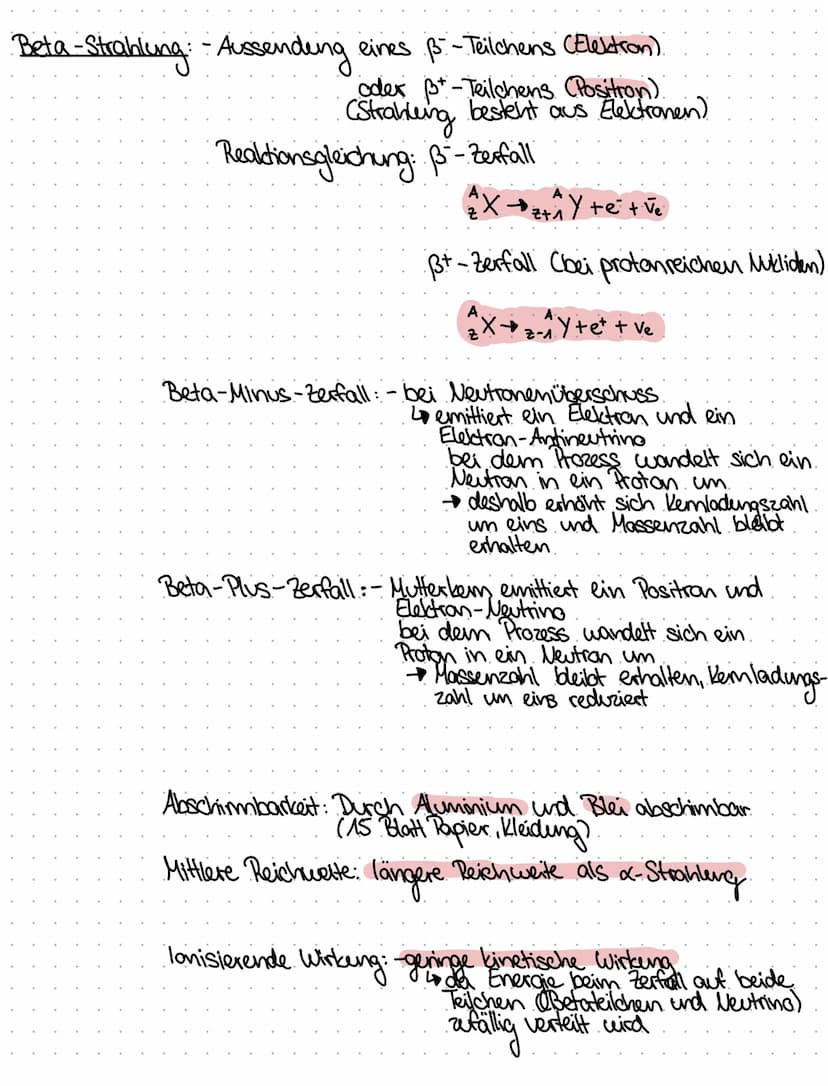 Beta-Strahlung: - Aussendung eines β⁻-Teilchens (Elektron)
oder β⁺-Teilchens (Positron)
(Strahlung besteht aus Elektronen)
Reaktionsgleichung: β⁻-Zerfall
ᴬ_Z X → ᴬ_Z+1 Y + e⁻ + ν̄e
β+-Zerfall (bei protonreichen Nukliden)
ᴬ_Z X → ᴬ_Z-1 Y + e⁺ + νe
Beta-Minus-Zerfall: - bei Neutronenüberschuss
↳ emittiert ein Elektron und ein
Elektron-Antineutrino
bei dem Prozess wandelt sich ein
Neutron in ein Proton um
→ deshalb erhöht sich Kernladungszahl
um eins und Massenzahl bleibt
erhalten
Beta-Plus-Zerfall: - Mutterkern emittiert ein Positron und
Elektron-Neutrino
bei dem Prozess wandelt sich ein
Proton in ein Neutron um
→ Massenzahl bleibt erhalten, Kernladungs-
zahl um eins reduziert
Abschirmbarkeit: Durch Aluminium und Blei abschirmbar
(15 Blatt Papier, Kleidung)
Mittlere Reichweite: längere Reichweite als α-Strahlung
Ionisierende Wirkung: -geringe kinetische Wirkung
↳ da Energie beim Zerfall auf beide
Teilchen (Betateilchen und Neutrino)
zufällig verteilt wird